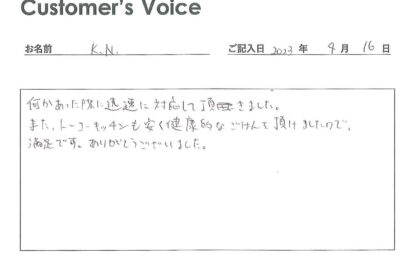 Customer's Voice
お名前 K.N. ご記入日 2023 年 9 月 16 日
何かあった際に迅速に対応して頂きました。
また、トーコーキッチンも安く健康的なごはんを頂けましたので、
満足です。ありがとうございました。